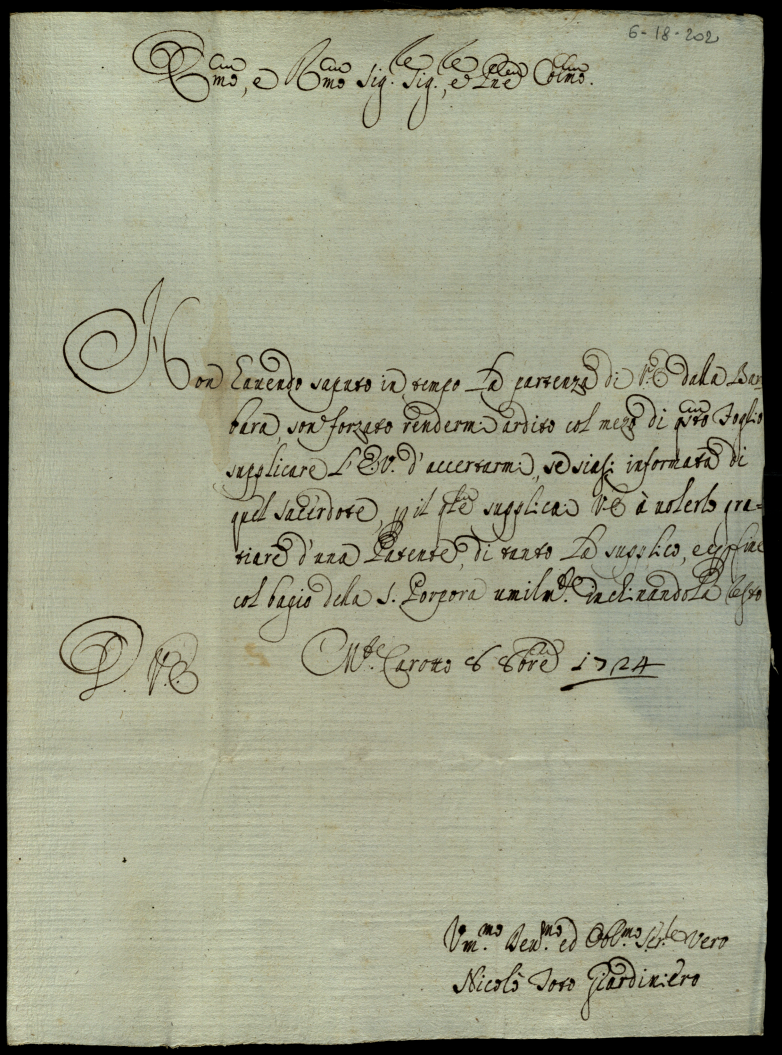 6-18-202
Emo, e Rmo Sig.re Sig.re, e Pne Colmo.
Non havendo saputo in tempo la partenza di V.E. dalla Bar=
bara, son forzato rendermi ardito col mezo di qsto foglio
supplicare l'E.V. d'accertarmi, se siasi informata di
quel sacerdote, p il qle supplicai V.E. à volerlo gra=
tiare d'una Patente, di tanto la supplico, e p fine
col bagio della S. Porpora umilmte. inchinandola resto
D. V.E.
Mte. Carotto 8 8bre 1724
Um.mo Dev.mo ed Obb.mo Ser.le Vero
Nicolò Toto Giardiniero